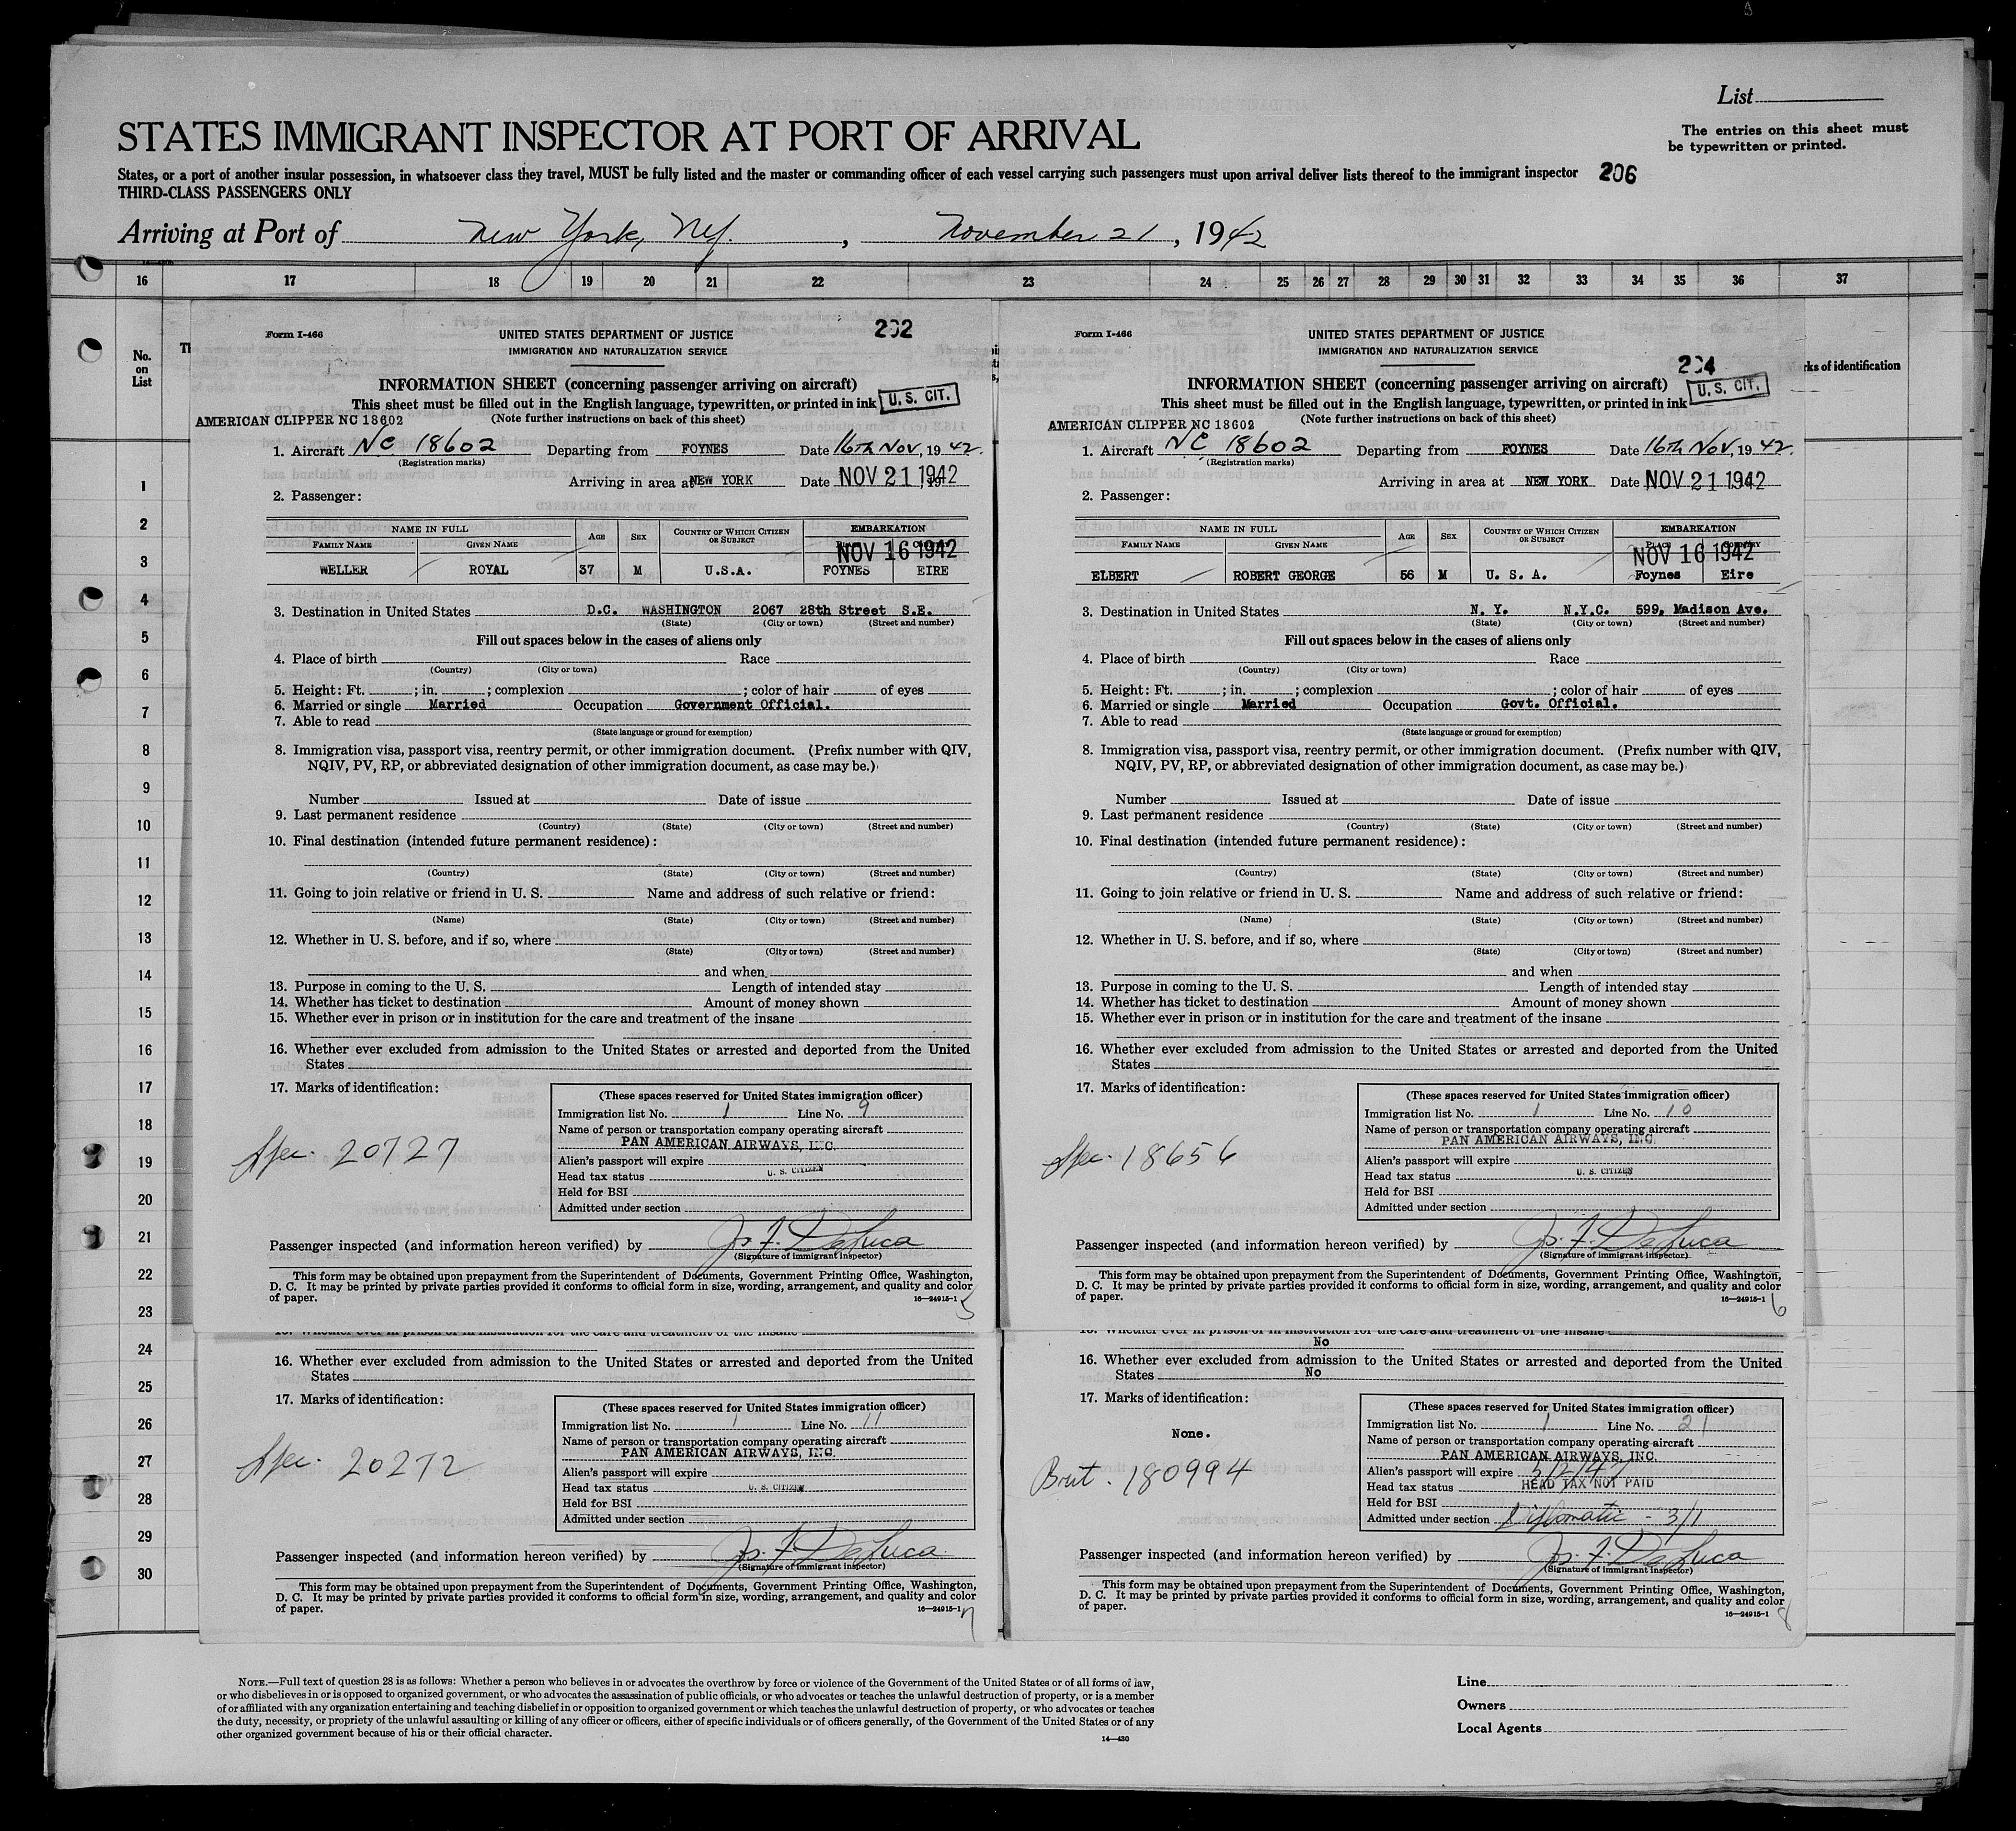 List
STATES IMMIGRANT INSPECTOR AT PORT OF ARRIVAL
The entries on this sheet must
be typewritten or printed.
States, or a port of another insular possession, in whatsoever class they travel, MUST be fully listed and the master or commanding officer of each vessel carrying such passengers must upon arrival deliver lists thereof to the immigrant inspector 206
THIRD-CLASS PASSENGERS ONLY
Arriving at Port of New York, N.Y. , November 21 , 1942
16 17 18 19 20 21 22 23 24 25 26 27 28 29 30 31 32 33 34 35 36 37
No.
on
List
1
2
3
4
5
6
7
8
9
10
11
12
13
14
15
16
17
18
19
20
21
22
23
24
25
26
27
28
29
30
Form I-466
UNITED STATES DEPARTMENT OF JUSTICE 202
IMMIGRATION AND NATURALIZATION SERVICE
INFORMATION SHEET (concerning passenger arriving on aircraft)
This sheet must be filled out in the English language, typewritten, or printed in ink U. S. CIT.
AMERICAN CLIPPER NC 18602 (Note further instructions on back of this sheet)
1. Aircraft NC 18602 Departing from FOYNES Date 16th Nov, 1942.
(Registration marks)
Arriving in area at NEW YORK Date NOV 21 1942
2. Passenger:
NAME IN FULL AGE SEX COUNTRY OF WHICH CITIZEN OR SUBJECT EMBARKATION
FAMILY NAME GIVEN NAME NOV 16 1942
WELLER ROYAL 37 M U.S.A. FOYNES EIRE
3. Destination in United States D.C. WASHINGTON 2067 28th Street S.E.
(State) (City or town) (Street and number)
Fill out spaces below in the cases of aliens only
4. Place of birth Race
(Country) (City or town)
5. Height: Ft. ; in. ; complexion ; color of hair of eyes
6. Married or single Married Occupation Government Official.
7. Able to read
(State language or ground for exemption)
8. Immigration visa, passport visa, reentry permit, or other immigration document. (Prefix number with QIV,
NQIV, PV, RP, or abbreviated designation of other immigration document, as case may be.)
Number Issued at Date of issue
9. Last permanent residence
(Country) (State) (City or town) (Street and number)
10. Final destination (intended future permanent residence):
(Country) (State) (City or town) (Street and number)
11. Going to join relative or friend in U. S. Name and address of such relative or friend:
(Name) (State) (City or town) (Street and number)
12. Whether in U. S. before, and if so, where
(State) (City or town) (Street and number)
and when
13. Purpose in coming to the U. S. Length of intended stay
14. Whether has ticket to destination Amount of money shown
15. Whether ever in prison or in institution for the care and treatment of the insane
16. Whether ever excluded from admission to the United States or arrested and deported from the United
States
17. Marks of identification:
(These spaces reserved for United States immigration officer)
Immigration list No. 1 Line No. 9
Name of person or transportation company operating aircraft
PAN AMERICAN AIRWAYS, INC.
Spec. 20727
Alien's passport will expire
Head tax status U. S. CITIZEN
Held for BSI
Admitted under section
Passenger inspected (and information hereon verified) by Js. F. DeLuca
(Signature of immigrant inspector)
This form may be obtained upon prepayment from the Superintendent of Documents, Government Printing Office, Washington,
D. C. It may be printed by private parties provided it conforms to official form in size, wording, arrangement, and quality and color
of paper. 16—24915-1 5
Form I-466
UNITED STATES DEPARTMENT OF JUSTICE
IMMIGRATION AND NATURALIZATION SERVICE 204
rks of identification
INFORMATION SHEET (concerning passenger arriving on aircraft)
This sheet must be filled out in the English language, typewritten, or printed in ink U. S. CIT.
AMERICAN CLIPPER NC 18602 (Note further instructions on back of this sheet)
1. Aircraft NC 18602 Departing from FOYNES Date 16th Nov, 1942.
(Registration marks)
Arriving in area at NEW YORK Date NOV 21 1942
2. Passenger:
NAME IN FULL AGE SEX COUNTRY OF WHICH CITIZEN OR SUBJECT EMBARKATION
FAMILY NAME GIVEN NAME PLACE COUNTRY NOV 16 1942
ELBERT ROBERT GEORGE 56 M U. S. A. Foynes Eire
3. Destination in United States N. Y. N.Y.C. 599, Madison Ave.
(State) (City or town) (Street and number)
Fill out spaces below in the cases of aliens only
4. Place of birth Race
(Country) (City or town)
5. Height: Ft. ; in. ; complexion ; color of hair of eyes
6. Married or single Married Occupation Govt. Official.
7. Able to read
(State language or ground for exemption)
8. Immigration visa, passport visa, reentry permit, or other immigration document. (Prefix number with QIV,
NQIV, PV, RP, or abbreviated designation of other immigration document, as case may be.)
Number Issued at Date of issue
9. Last permanent residence
(Country) (State) (City or town) (Street and number)
10. Final destination (intended future permanent residence):
(Country) (State) (City or town) (Street and number)
11. Going to join relative or friend in U. S. Name and address of such relative or friend:
(Name) (State) (City or town) (Street and number)
12. Whether in U. S. before, and if so, where
(State) (City or town) (Street and number)
and when
13. Purpose in coming to the U. S. Length of intended stay
14. Whether has ticket to destination Amount of money shown
15. Whether ever in prison or in institution for the care and treatment of the insane
16. Whether ever excluded from admission to the United States or arrested and deported from the United
States
17. Marks of identification:
(These spaces reserved for United States immigration officer)
Immigration list No. 1 Line No. 10
Name of person or transportation company operating aircraft
PAN AMERICAN AIRWAYS, INC.
Spec. 18656
Alien's passport will expire
Head tax status U. S. CITIZEN
Held for BSI
Admitted under section
Passenger inspected (and information hereon verified) by Js. F. DeLuca
(Signature of immigrant inspector)
This form may be obtained upon prepayment from the Superintendent of Documents, Government Printing Office, Washington,
D. C. It may be printed by private parties provided it conforms to official form in size, wording, arrangement, and quality and color
of paper. 16—24915-1 6
15. Whether ever in prison or in institution for the care and treatment of the insane
16. Whether ever excluded from admission to the United States or arrested and deported from the United
States
17. Marks of identification:
(These spaces reserved for United States immigration officer)
Immigration list No. 1 Line No. 11
Name of person or transportation company operating aircraft
PAN AMERICAN AIRWAYS, INC.
Spec. 20272
Alien's passport will expire
Head tax status U. S. CITIZEN
Held for BSI
Admitted under section
Passenger inspected (and information hereon verified) by Js. F. DeLuca
(Signature of immigrant inspector)
This form may be obtained upon prepayment from the Superintendent of Documents, Government Printing Office, Washington,
D. C. It may be printed by private parties provided it conforms to official form in size, wording, arrangement, and quality and color
of paper. 16—24915-1 7
15. Whether ever in prison or in institution for the care and treatment of the insane
No
16. Whether ever excluded from admission to the United States or arrested and deported from the United
States No
17. Marks of identification:
None.
(These spaces reserved for United States immigration officer)
Immigration list No. 1 Line No. 21
Name of person or transportation company operating aircraft
PAN AMERICAN AIRWAYS, INC.
Brit. 180994
Alien's passport will expire 3/2/47
Head tax status HEAD TAX NOT PAID
Held for BSI
Admitted under section Diplomatic - 3/1
Passenger inspected (and information hereon verified) by Js. F. DeLuca
(Signature of immigrant inspector)
This form may be obtained upon prepayment from the Superintendent of Documents, Government Printing Office, Washington,
D. C. It may be printed by private parties provided it conforms to official form in size, wording, arrangement, and quality and color
of paper. 16—24915-1 8
NOTE.—Full text of question 28 is as follows: Whether a person who believes in or advocates the overthrow by force or violence of the Government of the United States or of all forms of law,
or who disbelieves in or is opposed to organized government, or who advocates the assassination of public officials, or who advocates or teaches the unlawful destruction of property, or is a member
of or affiliated with any organization entertaining and teaching disbelief in or opposition to organized government or which teaches the unlawful destruction of property, or who advocates or teaches
the duty, necessity, or propriety of the unlawful assaulting or killing of any officer or officers, either of specific individuals or of officers generally, of the Government of the United States or of any
other organized government because of his or their official character.
14—430
Line
Owners
Local Agents